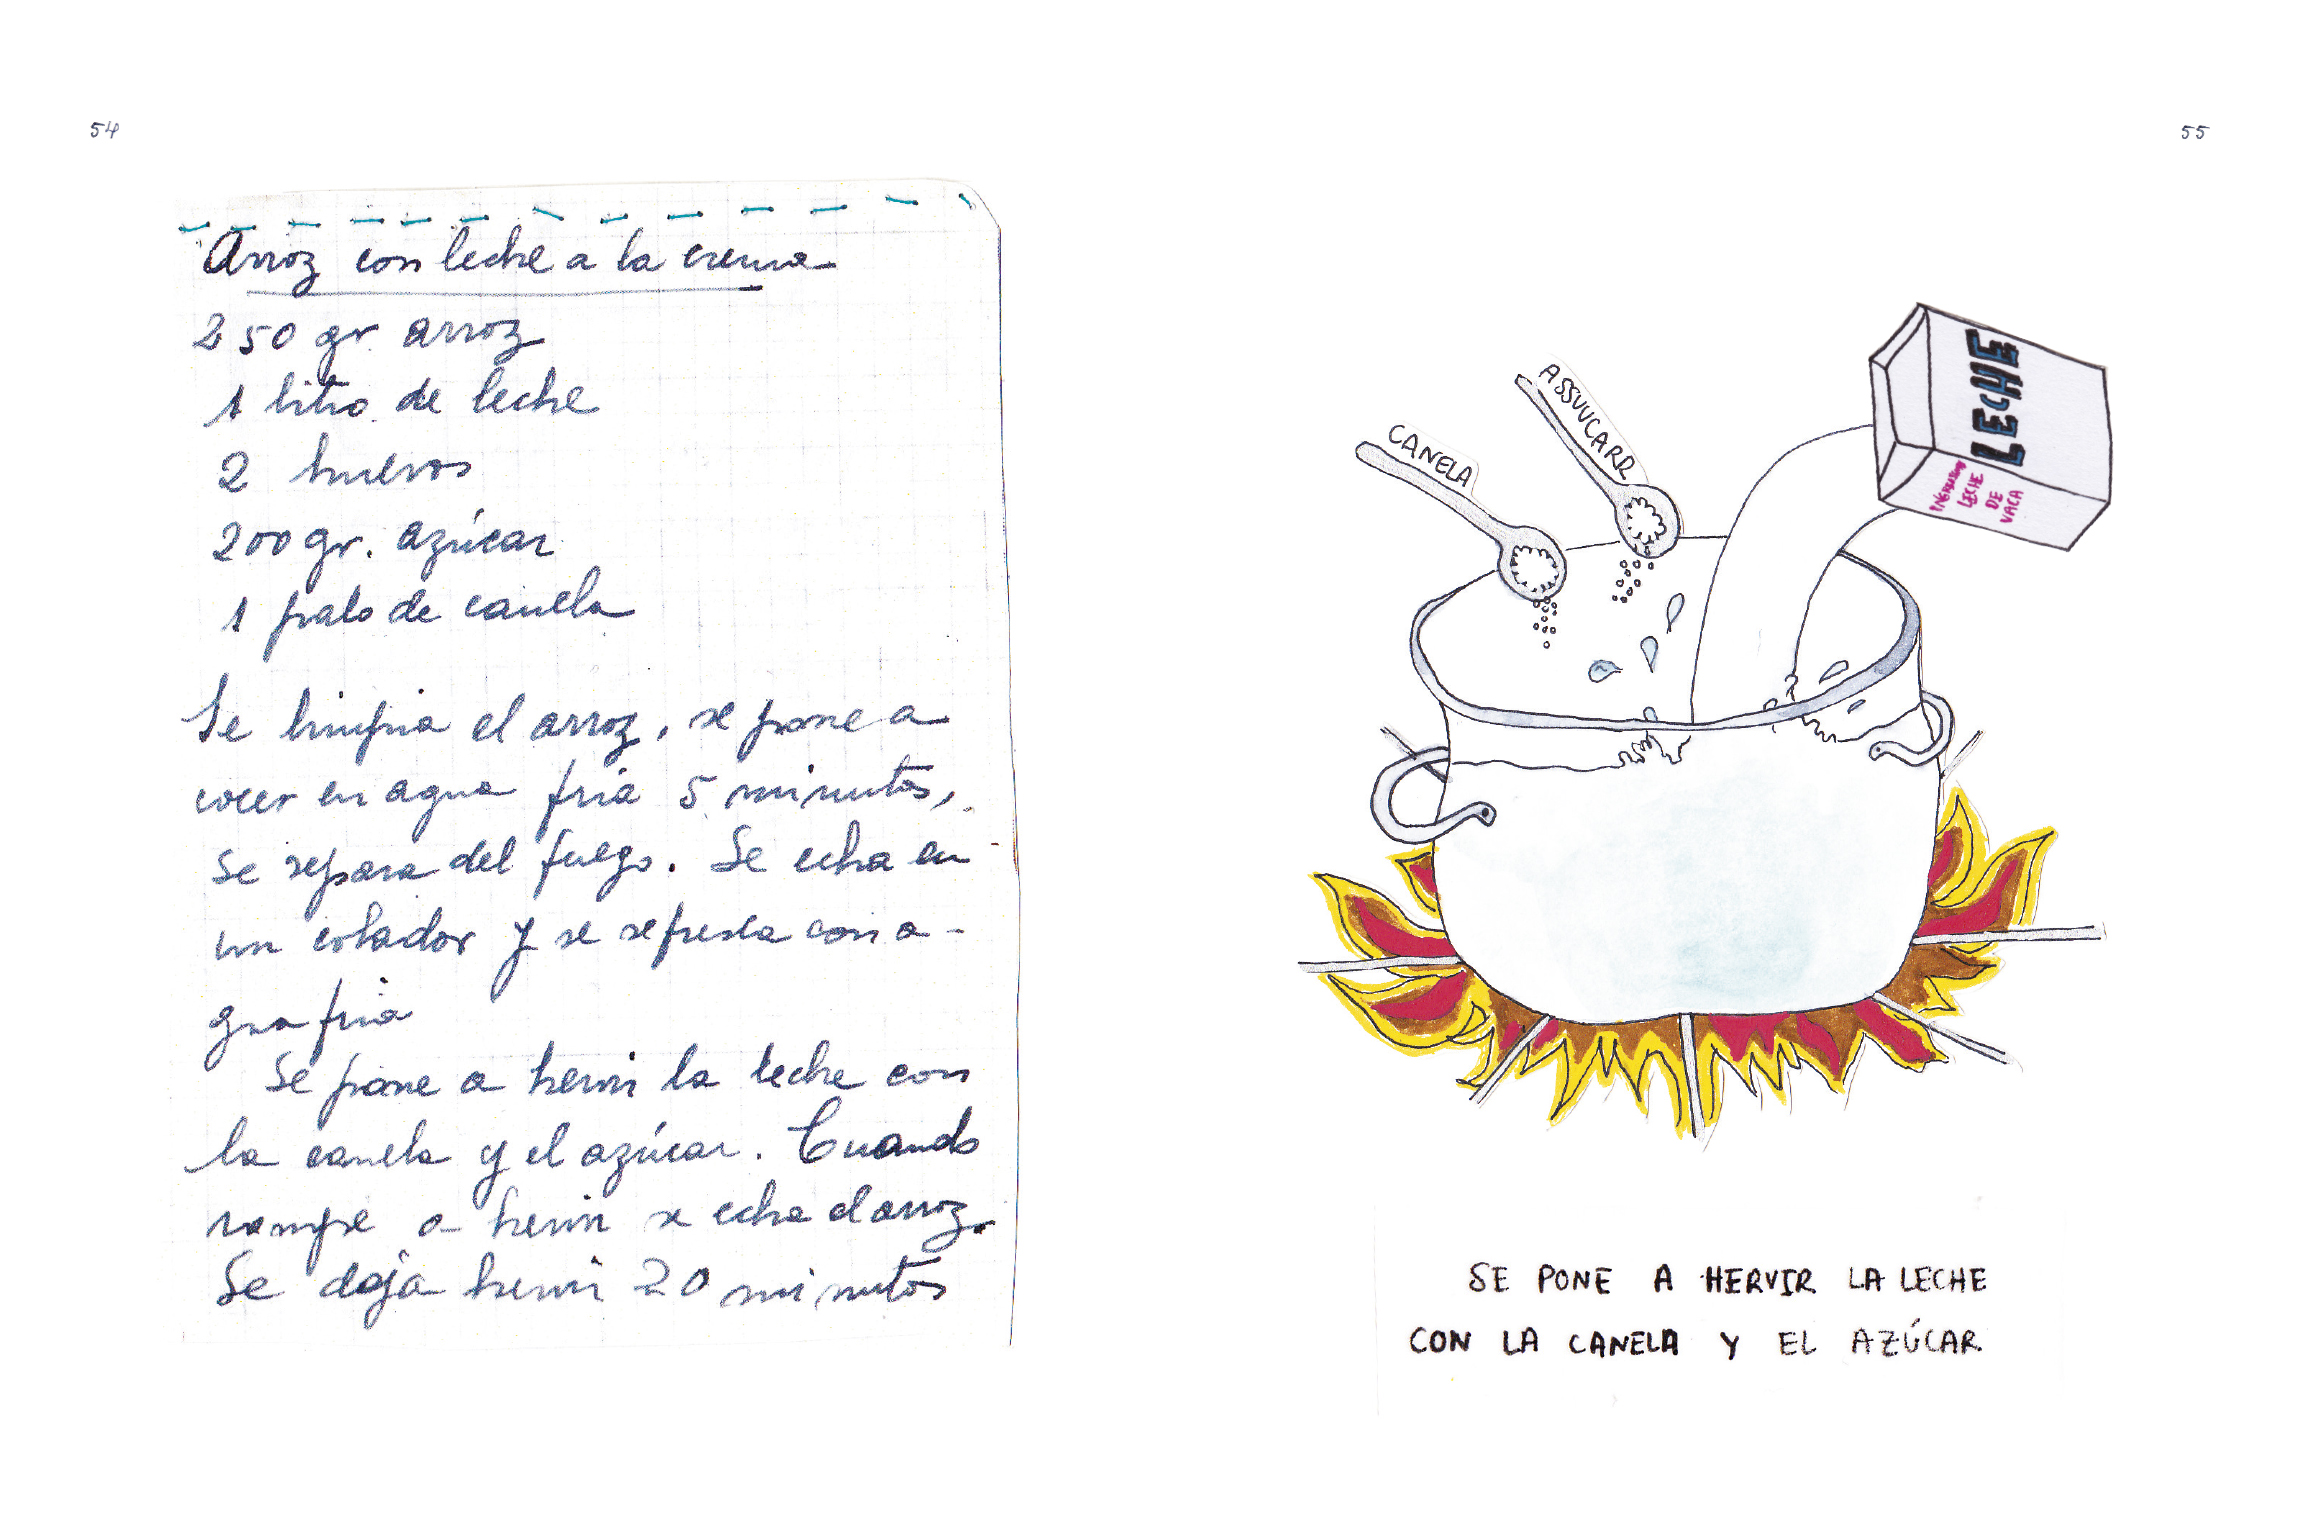 54
Arroz con leche a la crema
250 gr. arroz
1 litro de leche
2 huevos
200 gr. azúcar
1 palo de canela
Se limpia el arroz, se pone a
cocer en agua fria 5 minutos,
se separa del fuego. Se echa en
un colador y se refresca con a-
gua fria
Se pone a hervir la leche con
la canela y el azúcar. Cuando
rompe a hervir se echa el arroz.
Se deja hervir 20 minutos
55
CANELA
ASSUUCARR
LECHE
INGREDIENTES
LECHE
DE
VACA
SE PONE A HERVIR LA LECHE
CON LA CANELA Y EL AZÚCAR